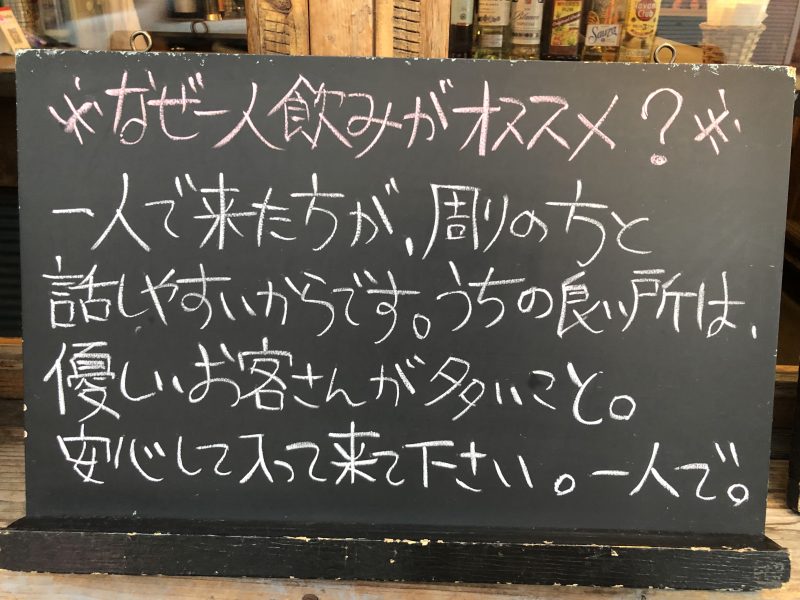 ※なぜ一人飲みがオススメ？※
一人で来た方が、周りの方と
話しやすいからです。うちの良い所は、
優しいお客さんが多いこと。
安心して入って来て下さい。一人で。
Sauza